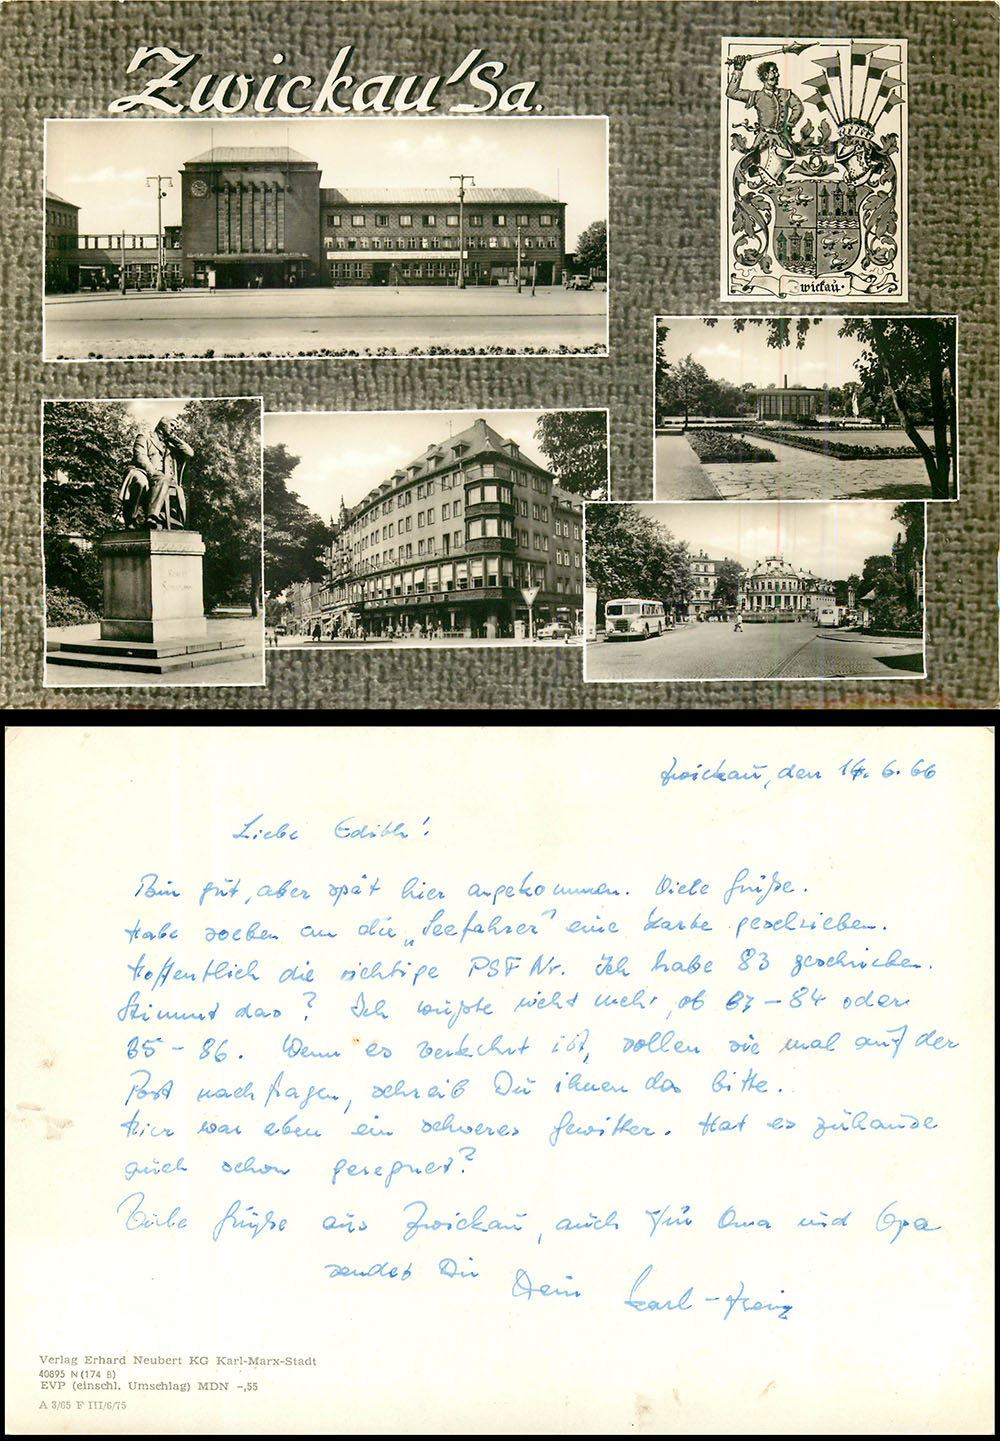 Zwickau/Sa.
Zwickau.
Robert
Schumann
Zwickau, den 14. 6. 66
Liebe Edith!
Bin gut, aber spät hier angekommen. Viele Grüße.
Habe soeben an die „Seefahrer“ eine Karte geschrieben.
Hoffentlich die richtige PSF Nr. Ich habe 83 geschrieben.
Stimmt das? Ich wußte nicht mehr, ob 83 – 84 oder
85 – 86. Wenn es verkehrt ist, sollen sie mal auf der
Post nachfragen, schreib Du ihnen das bitte.
Hier war eben ein schweres Gewitter. Hat es zuhause
auch schon geregnet?
Viele Grüße aus Zwickau, auch für Oma und Opa
sendet Dir Dein Karl-Heinz
Verlag Erhard Neubert KG Karl-Marx-Stadt
40895 N (174 B)
EVP (einschl. Umschlag) MDN -,55
A 3/65 F III/6/75